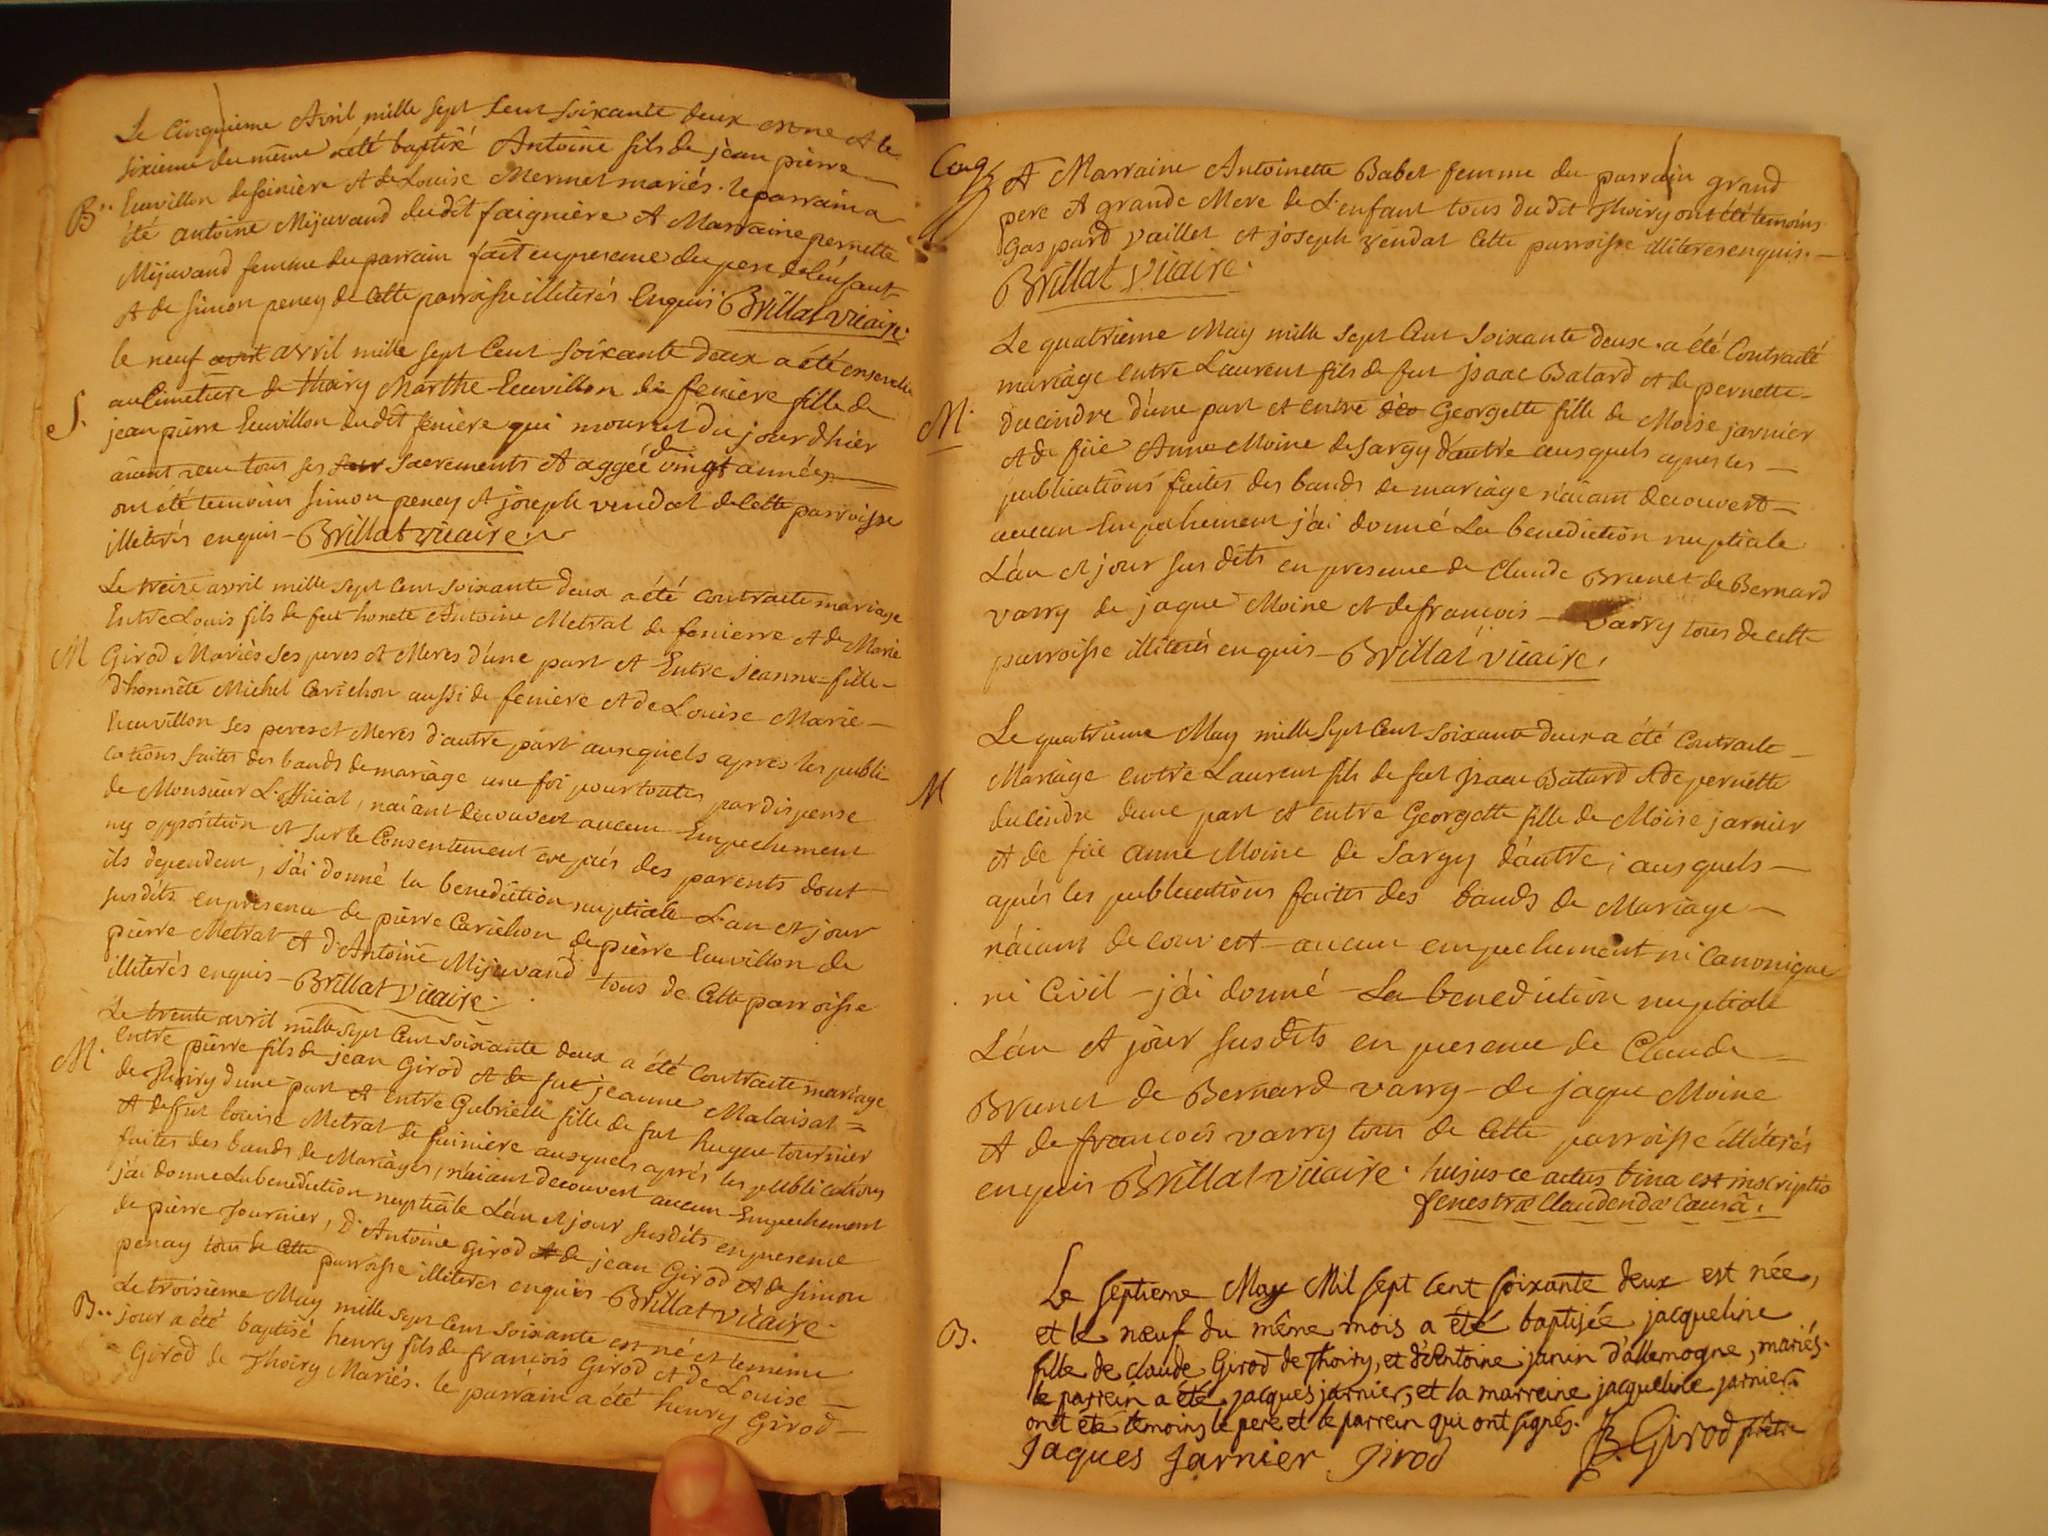 Le Cinquieme Avril mille sept Cent soixante deux est né et le
sixieme du même a été baptisé Antoine fils de jean pierre
B.. Emvillon de feiniere et de Louise Mermet mariés. le parrain a
été antoine Mijuvand dudit faigniere et Marraine pernette
Mijuvand femme du parrain fait en presence du pere de l'enfant
et de simon peney de cette parroisse illiterés enquis Brillat vicaire.
le neuf avril avril mille sept Cent soixante deux a été enseveli
S. au Cimetiere de thoiry Marthe Emvillon de feniere fille de
jean pierre Emvillon dudit feniere qui mourut du jour d'hier
aiant reçu tous ses sacrements et aggée de vingt années
ont été temoins simon peney et joseph vendat de cette parroisse
illiterés enquis - Brillat vicaire.
Le treize avril mille sept Cent soixante deux a été contracte mariage
Entre Louis fils de feu honete Antoine Metral de fenierre et de Marie
M Girod Mariés ses peres et Meres d'une part et Entre jeanne fille
d'honnête Michel Carichon aussi de feniere et de Louise Marie
Emvillon ses peres et Meres d'autre part ausquels apres les publi
cations faites des bands de mariage une foi pour toutes par dispense
de Monsieur L'official, n'aiant decouvert aucun Empechement
ny opposition et sur le Consentement exprès des parents dont
ils dependent, j'ai donné la benediction nuptiale L'an et jour
susdits en presence de pierre Carichon de pierre Emvillon de
pierre Metral et d'Antoine Mijuvand tous de Cette parroisse
illiterés enquis - Brillat vicaire.
Le trente avril mille sept Cent soixante deux a été contracte mariage
M. entre pierre fils de jean Girod et de feue jeanne Malaisat
de Thoiry d'une part et entre Gabrielle fille de feu hugue tournier
et de feue louise Metral de feiniere ausquels aprés les publications
faites des bands de Mariages, n'aiant decouvert aucun Empechement
j'ai donné la benediction nuptiale L'an et jour susdits en presence
de pierre tournier, d'Antoine Girod et de jean Girod et de simon
penay tous de cette parroisse illiterés enquis - Brillat vicaire.
Le troisieme May mille sept Cent soixante est né et le même
B.. jour a été baptisé henry fils de francois Girod et de Louise
Girod de Thoiry Mariés. le parrain a été henry Girod
et Marraine Antoinette Babet femme du parrain grand
pere et grande Mere de L'enfant tous du dit Thoiry ont été temoins
Gaspard vaillet et joseph vendat Cette parroisse illiteres enquis.
Brillat vicaire.
Le quatrieme May mille sept Cent soixante deux a été Contracté
mariage entre Laurent fils de feu jsaac Batard et de pernette
M. ducindre d'une part et entre Georgette fille de Moise jarnier
et de feüe Anne Moine de Sargy d'autre ausquels apres les
publications faites des bands de mariage n'aiant decouvert
aucun Empechement j'ai donné La benediction nuptiale
L'an et jour sus dits en presence de Claude Brunet de Bernard
varry de jaque Moine et de francois varry tous de cette
parroisse illiterés enquis - Brillat vicaire.
Le quatrieme May mille Sept Cent soixante deux a été Contracte
M Mariage entre Laurent fils de feu jsaac Batard et de pernette
ducindre d'une part et entre Georgette fille de Moise jarnier
et de feüe anne Moine de Sargy d'autre; ausquels
aprés les publications faites des bands de Mariage
n'aiant decouvert aucun empechement ni Canonique
ni Civil - j'ai donné La benediction nuptiale
L'an et jour sus dits en presence de Claude
Brunet de Bernard varry de jaque Moine
et de francois varry tous de Cette parroisse illiterés
enquis Brillat vicaire. hujusce actus bina est inscriptio
fenestræ Claudendæ Causâ.
Le septieme May Mil sept cent soixante deux est née,
B. et le neuf du même mois a été baptisée jacqueline
fille de claude Girod de Thoiry, et d'Antoine janin d'allemogne, mariés.
le parrein a été jacques jarnier, et la marreine jacqueline jarnier
ont été temoins le pere et le parrein qui ont signés.
Jaques Jarnier Girod B. Girod prêtre